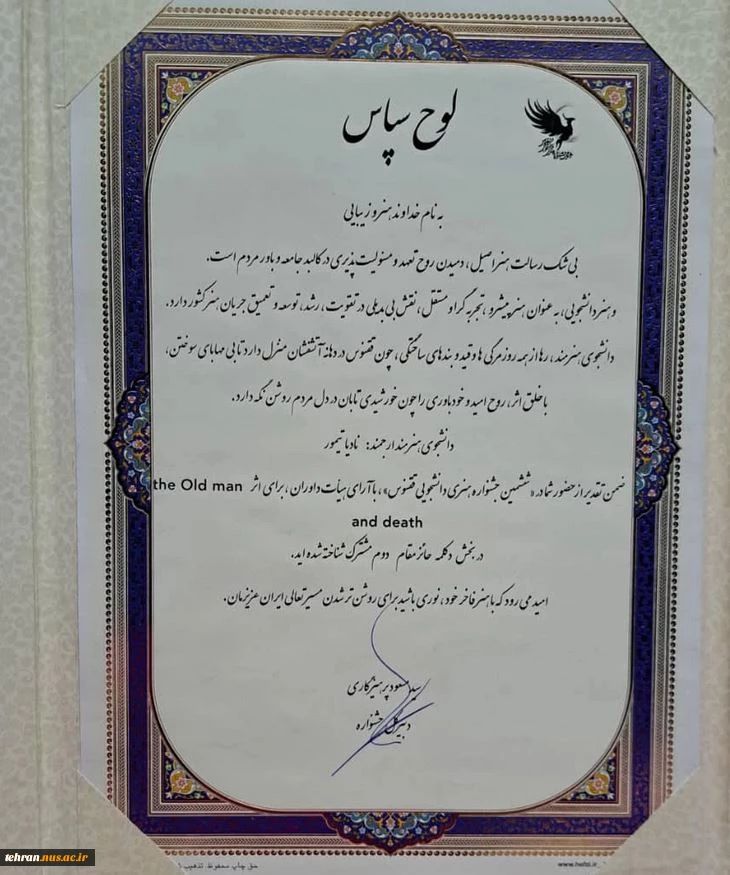 لوح سپاس
به نام خداوند هنر و زیبایی
بی شک رسالت هنر اصیل، دمیدن روح تعهد و مسئولیت پذیری در کالبد جامعه و باور مردم است.
و هنر دانشجویی، به عنوان هنر پیشرو، تجربه گرا و مستقل، نقش بی بدیلی در تقویت، رشد، توسعه و تعمیق جریان هنر کشور دارد.
دانشجوی هنرمند، رها از همه روزمرگی ها و قید و بندهای ساختگی، چون ققنوس در دهانه آتشفشان منزل دارد تا بی مهابای سوختن،
با خلق اثر، روح امید و خودباوری را چون خورشیدی تابان در دل مردم روشن نگه دارد.
دانشجوی هنرمند ارجمند: نادیا تیمور
ضمن تقدیر از حضور شما در «ششمین جشنواره هنری دانشجویی ققنوس»، با آرای هیأت داوران، برای اثر the Old man
and death
در بخش دکلمه حائز مقام دوم مشترک شناخته شده اید.
امید می رود که با هنر فاخر خود، نوری باشید برای روشن تر شدن مسیر تعالی ایران عزیزمان.
سید مسعود پرهیزکاری
دبیر کل جشنواره
حق چاپ محفوظ. تذهیب
www.hefzi.ir
tehran.nus.ac.ir